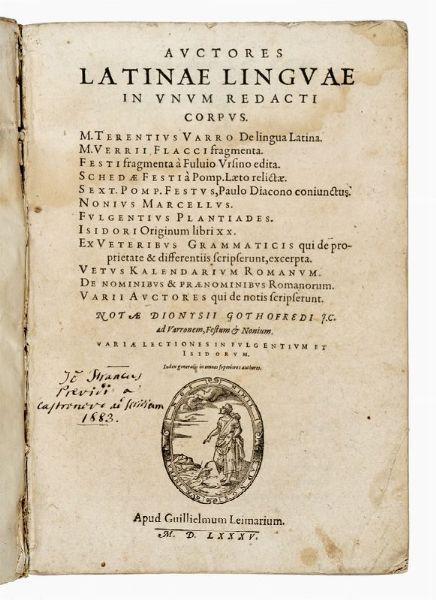 AVCTORES
LATINAE LINGVAE
IN VNVM REDACTI
CORPVS.
M. TERENTIVS VARRO De lingua Latina.
M. VERRII FLACCI fragmenta.
FESTI fragmenta à Fuluio Vrsino edita.
SCHEDÆ FESTI à Pomp. Læto relictæ.
SEXT. POMP. FESTVS, Paulo Diacono coniunctus.
NONIVS MARCELLVS.
FVLGENTIVS PLANTIADES.
ISIDORI Originum libri XX.
EX VETERIBVS GRAMMATICIS qui de pro-
prietate & differentiis scripserunt, excerpta.
VETVS KALENDARIVM ROMANVM.
DE NOMINIBVS & PRÆNOMINIBVS Romanorum.
VARII AVCTORES qui de notis scripserunt.
NOTÆ DIONYSII GOTHOFREDI J.C.
ad Varronem, Festum & Nonium.
VARIÆ LECTIONES IN FVLGENTIVM ET
ISIDORVM.
Index generalis in omnes superiores auctores.
1883.
Apud Guillielmum Leimarium.
M. D. LXXXV.